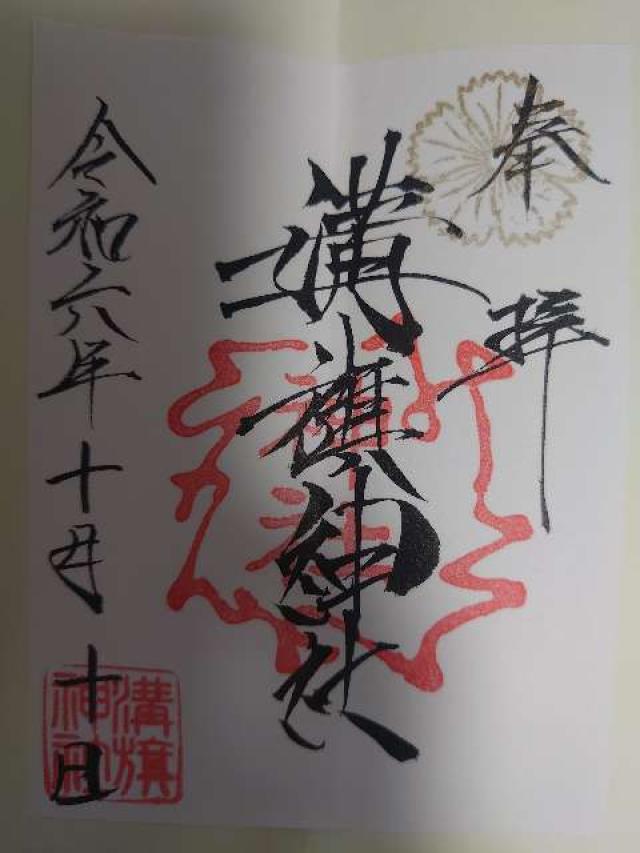 奉拝
溝旗神社
令和六年十月十日
溝旗神社